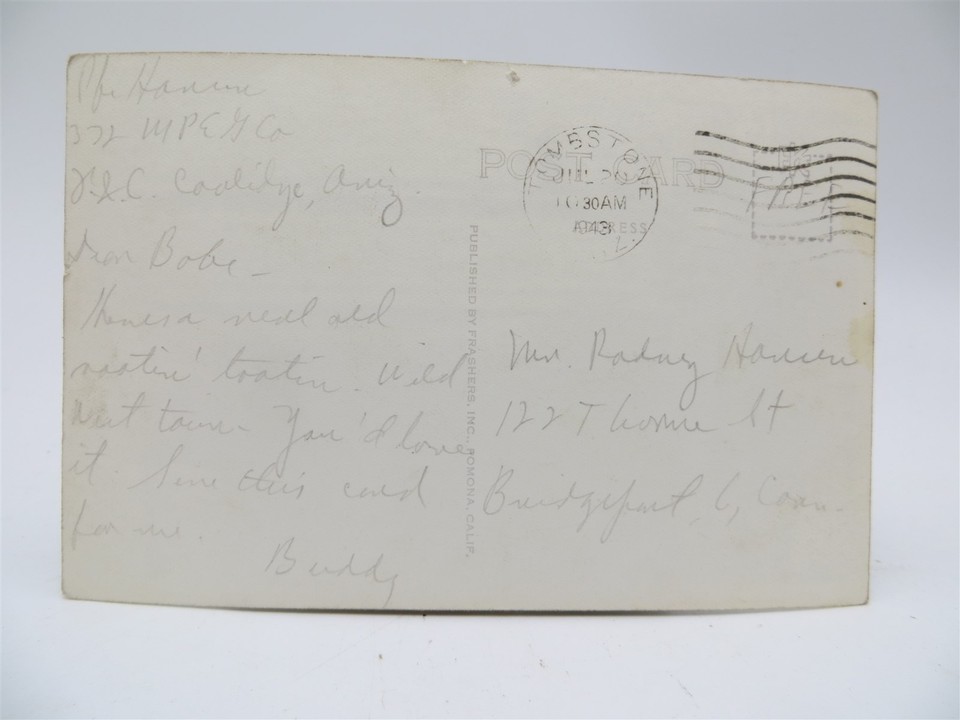 Pfc Hansen
372 M P E G Co
Coolidge, Ariz.
Dear Bobe –
Here's a real old
rootin' tootin. Wild
West town – You'd love
it. Save this card
for me.
Buddy
PUBLISHED BY FRASHERS, INC., POMONA, CALIF.
POST CARD
ADDRESS
TOMBSTONE
JUL 20
10 30AM
1943
FREE
Mr. Rodney Hansen
122 Thorme St
Bridgeport, 6, Conn.